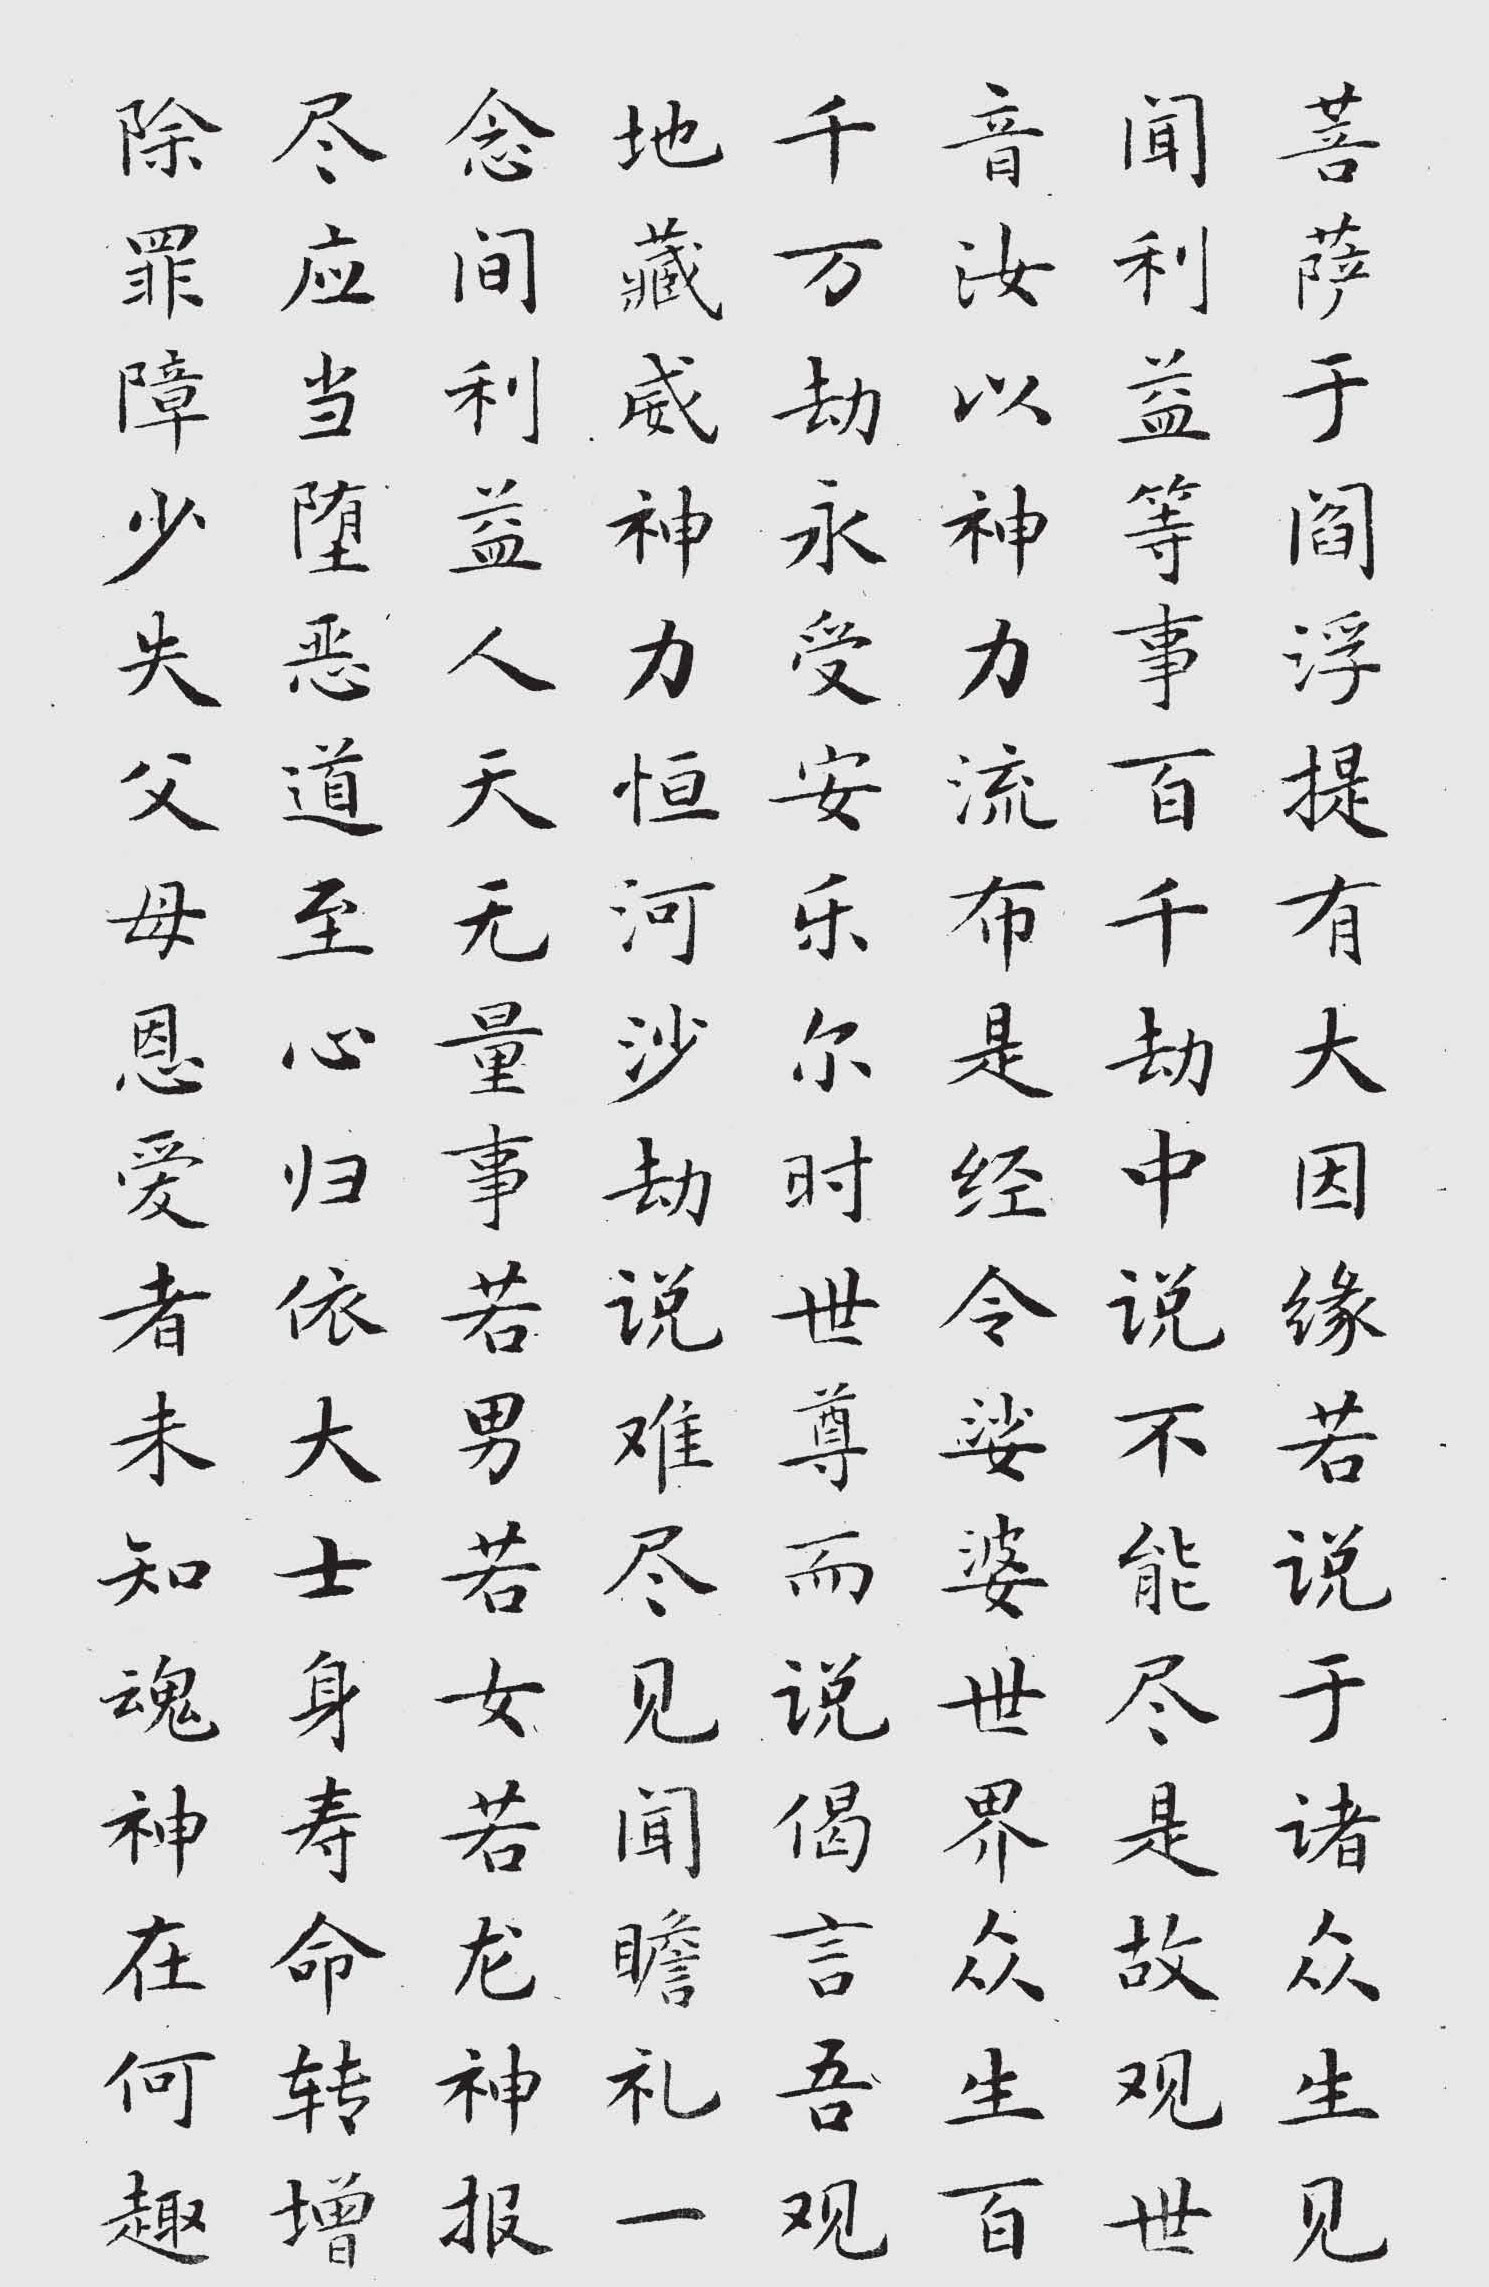 菩萨于阎浮提有大因缘若说于诸众生见
闻利益等事百千劫中说不能尽是故观世
音汝以神力流布是经令娑婆世界众生百
千万劫永受安乐尔时世尊而说偈言吾观
地藏威神力恒河沙劫说难尽见闻瞻礼一
念间利益人天无量事若男若女若龙神报
尽应当堕恶道至心归依大士身寿命转增
除罪障少失父母恩爱者未知魂神在何趣